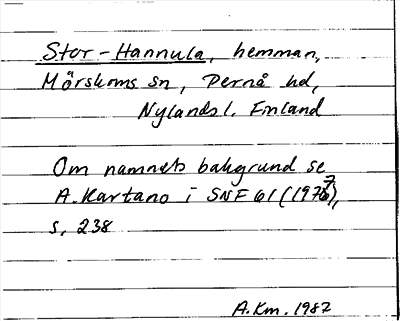 Stor-Hannula, hemman,
Mörskoms sn, Pernå hd,
Nylands l. Finland
Om namnets bakgrund se
A. Kartano i SNF 61 (1977),
s. 238
A.Km. 1987